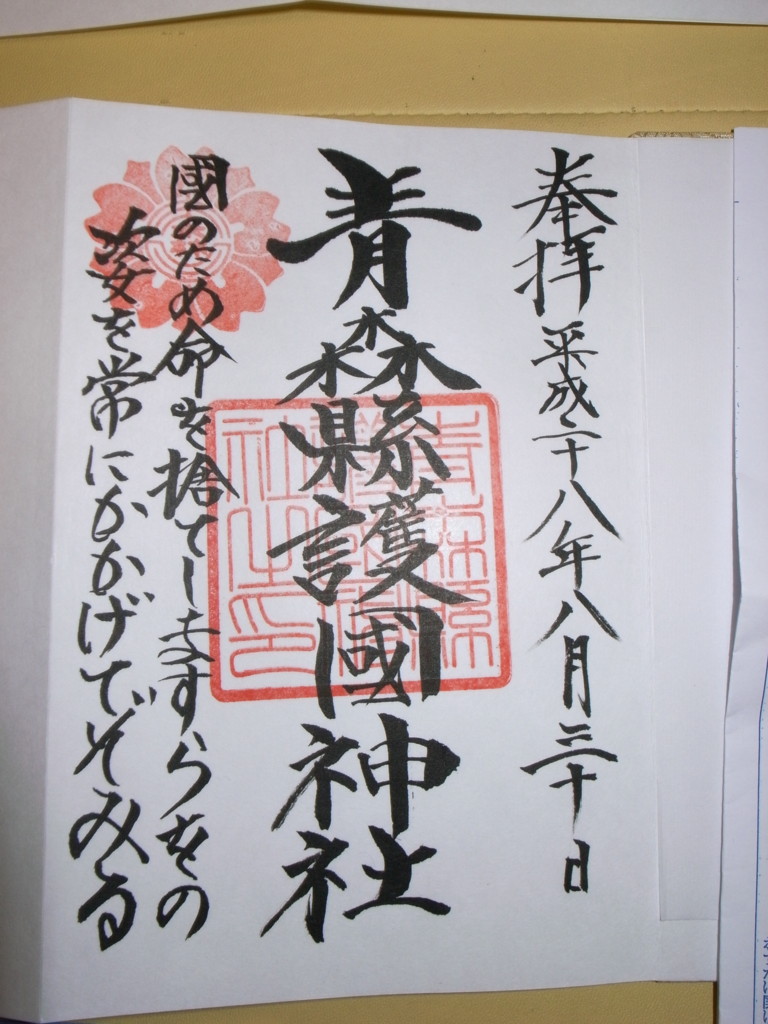 奉拝 平成二十八年八月三十日
青森縣護國神社
國のため命を捨てしますらをの
姿を常にかかげてぞみる
青森縣護國神社之印